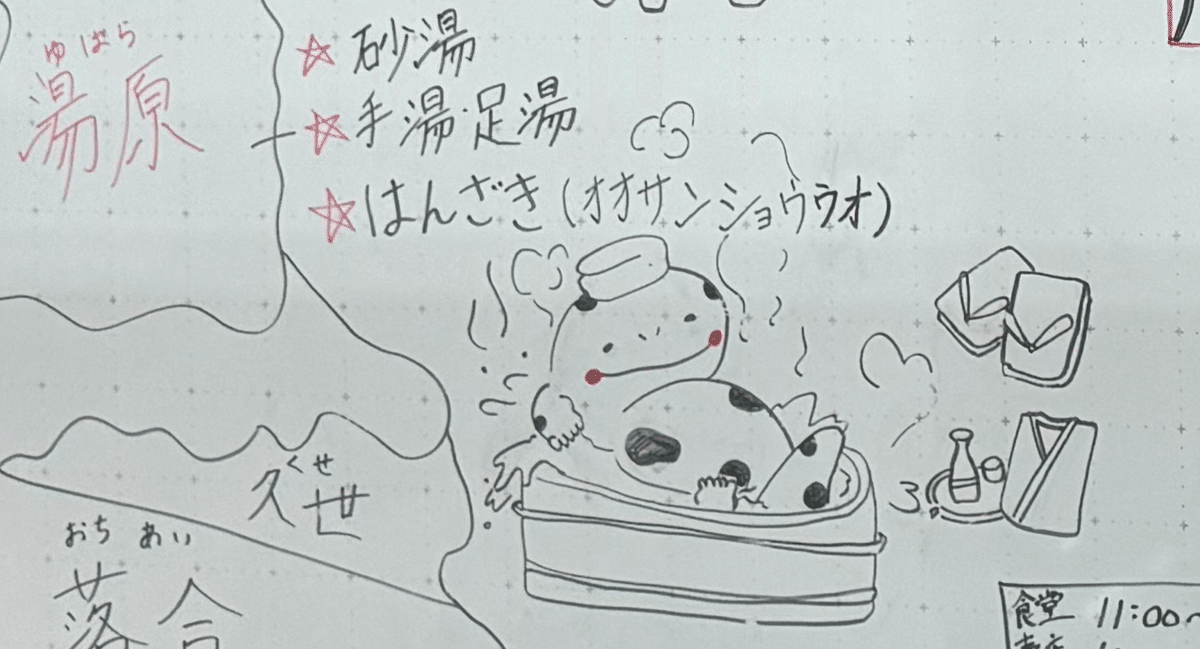 ゆばら
湯原
☆砂湯
☆手湯・足湯
☆はんざき(オオサンショウウオ)
くせ
久世
おちあい
落合
食堂 11:00~